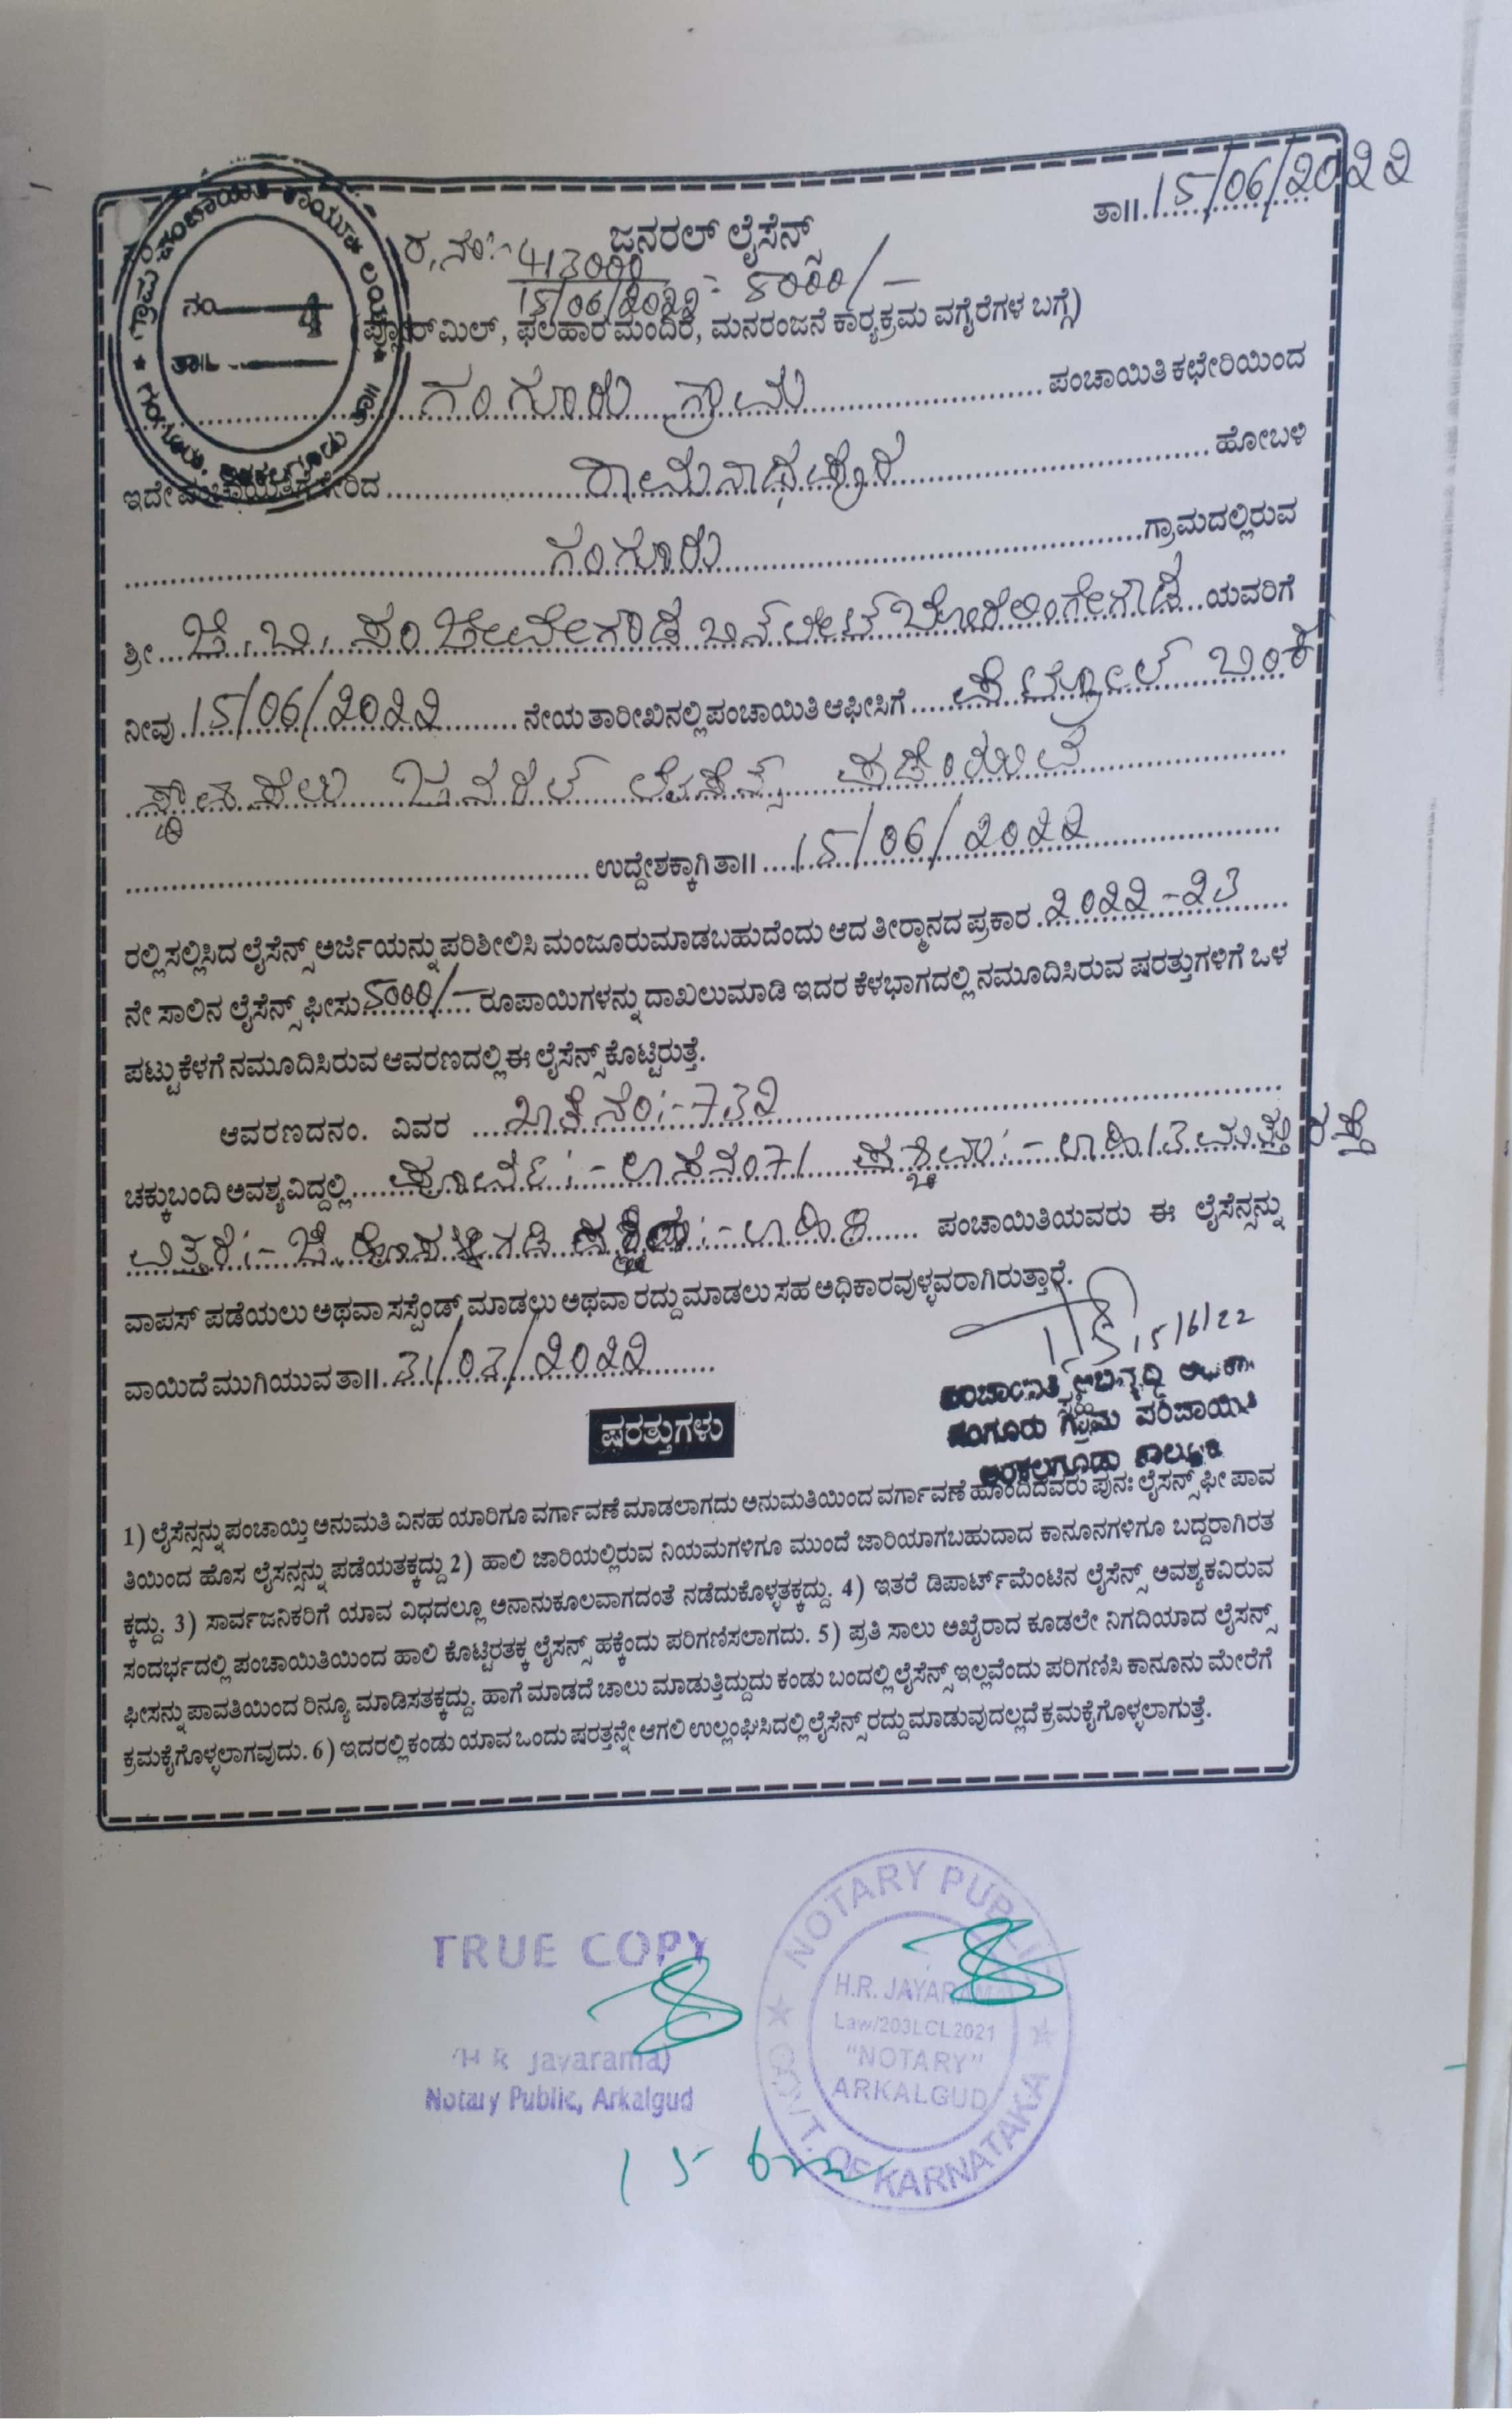 ತಾ॥ 15/06/2022
ಜನರಲ್ ಲೈಸೆನ್ಸ್
ರ,ನಂ:- 413000 = 5000/-
15/06/2022
ಪ್ಲೋರ್‌ಮಿಲ್, ಫಲಹಾರ ಮಂದಿರ, ಮನರಂಜನೆ ಕಾರ್‍ಯಕ್ರಮ ವಗೈರೆಗಳ ಬಗ್ಗೆ)
ನಂ 4
ತಾ॥
ಗಂಗೂರು ಗ್ರಾಮ ಪಂಚಾಯಿತಿ ಕಛೇರಿಯಿಂದ
ಇದೇ ಪಂಚಾಯಿತಿಗೆ ಸೇರಿದ ರಾಮನಾಥಪುರ ಹೋಬಳಿ
ಗಂಗೂರು ಗ್ರಾಮದಲ್ಲಿರುವ
ಶ್ರೀ ಜಿ.ಬಿ. ಸಂಜೀವೇಗೌಡ ಬಿನ್ ಲೇಟ್ ಬೋರಲಿಂಗೇಗೌಡ ಯವರಿಗೆ
ನೀವು 15/06/2022 ನೇಯ ತಾರೀಖಿನಲ್ಲಿ ಪಂಚಾಯಿತಿ ಆಫೀಸಿಗೆ ಪೆಟ್ರೋಲ್ ಬಂಕ್
ಸ್ಥಾಪಿಸಲು ಜನರಲ್ ಲೈಸೆನ್ಸ್ ಪಡೆಯುವ
ಉದ್ದೇಶಕ್ಕಾಗಿ ತಾ॥ 15/06/2022
ರಲ್ಲಿ ಸಲ್ಲಿಸಿದ ಲೈಸೆನ್ಸ್ ಅರ್ಜಿಯನ್ನು ಪರಿಶೀಲಿಸಿ ಮಂಜೂರುಮಾಡಬಹುದೆಂದು ಆದ ತೀರ್‍ಮಾನದ ಪ್ರಕಾರ 2022-23
ನೇ ಸಾಲಿನ ಲೈಸೆನ್ಸ್ ಫೀಸು 5000/- ರೂಪಾಯಿಗಳನ್ನು ದಾಖಲುಮಾಡಿ ಇದರ ಕೆಳಭಾಗದಲ್ಲಿ ನಮೂದಿಸಿರುವ ಷರತ್ತುಗಳಿಗೆ ಒಳ
ಪಟ್ಟು ಕೆಳಗೆ ನಮೂದಿಸಿರುವ ಆವರಣದಲ್ಲಿ ಈ ಲೈಸೆನ್ಸ್ ಕೊಟ್ಟಿರುತ್ತೆ.
ಆವರಣದನಂ. ವಿವರ ಖಾತೆ ನಂ:-732
ಚಕ್ಕುಬಂದಿ ಅವಶ್ಯವಿದ್ದಲ್ಲಿ
ಪಂಚಾಯಿತಿಯವರು ಈ ಲೈಸೆನ್ಸನ್ನು
ವಾಪಸ್ ಪಡೆಯಲು ಅಥವಾ ಸಸ್ಪೆಂಡ್ ಮಾಡಲು ಅಥವಾ ರದ್ದು ಮಾಡಲು ಸಹ ಅಧಿಕಾರವುಳ್ಳವರಾಗಿರುತ್ತಾರೆ.
15/6/22
ವಾಯಿದೆ ಮುಗಿಯುವ ತಾ॥ 31/03/2022
ಪಂಚಾಯಿತಿ ಅಭಿವೃದ್ಧಿ ಅಧಿಕಾರಿ
ಗಂಗೂರು ಗ್ರಾಮ ಪಂಚಾಯಿತಿ
ಅರಕಲಗೂಡು ತಾಲ್ಲೂಕು
ಷರತ್ತುಗಳು
1) ಲೈಸೆನ್ಸನ್ನು ಪಂಚಾಯ್ತಿ ಅನುಮತಿ ವಿನಹ ಯಾರಿಗೂ ವರ್ಗಾವಣೆ ಮಾಡಲಾಗದು ಅನುಮತಿಯಿಂದ ವರ್ಗಾವಣೆ ಹೊಂದಿದವರು ಪುನಃ ಲೈಸೆನ್ಸ್ ಫೀ ಪಾವ
ತಿಯಿಂದ ಹೊಸ ಲೈಸನ್ಸನ್ನು ಪಡೆಯತಕ್ಕದ್ದು 2) ಹಾಲಿ ಜಾರಿಯಲ್ಲಿರುವ ನಿಯಮಗಳಿಗೂ ಮುಂದೆ ಜಾರಿಯಾಗಬಹುದಾದ ಕಾನೂನಗಳಿಗೂ ಬದ್ದರಾಗಿರತ
ಕ್ಕದ್ದು. 3) ಸಾರ್ವಜನಿಕರಿಗೆ ಯಾವ ವಿಧದಲ್ಲೂ ಅನಾನುಕೂಲವಾಗದಂತೆ ನಡೆದುಕೊಳ್ಳತಕ್ಕದ್ದು. 4) ಇತರೆ ಡಿಪಾರ್ಟ್‌ಮೆಂಟಿನ ಲೈಸೆನ್ಸ್ ಅವಶ್ಯಕವಿರುವ
ಸಂದರ್ಭದಲ್ಲಿ ಪಂಚಾಯಿತಿಯಿಂದ ಹಾಲಿ ಕೊಟ್ಟಿರತಕ್ಕ ಲೈಸನ್ಸ್ ಹಕ್ಕೆಂದು ಪರಿಗಣಿಸಲಾಗದು. 5) ಪ್ರತಿ ಸಾಲು ಅಖೈರಾದ ಕೂಡಲೇ ನಿಗದಿಯಾದ ಲೈಸನ್ಸ್
ಫೀಸನ್ನು ಪಾವತಿಯಿಂದ ರಿನ್ಯೂ ಮಾಡಿಸತಕ್ಕದ್ದು. ಹಾಗೆ ಮಾಡದೆ ಚಾಲು ಮಾಡುತ್ತಿದ್ದುದು ಕಂಡು ಬಂದಲ್ಲಿ ಲೈಸೆನ್ಸ್ ಇಲ್ಲವೆಂದು ಪರಿಗಣಿಸಿ ಕಾನೂನು ಮೇರೆಗೆ
ಕ್ರಮಕೈಗೊಳ್ಳಲಾಗವುದು. 6) ಇದರಲ್ಲಿ ಕಂಡು ಯಾವ ಒಂದು ಷರತ್ತನ್ನೇ ಆಗಲಿ ಉಲ್ಲಂಘಿಸಿದಲ್ಲಿ ಲೈಸೆನ್ಸ್ ರದ್ದು ಮಾಡುವುದಲ್ಲದೆ ಕ್ರಮಕೈಗೊಳ್ಳಲಾಗುತ್ತೆ.
TRUE COPY
(H R Jayarama)
Notary Public, Arkalgud
NOTARY PUBLIC
H.R. JAYARAMA
Law/203LCL2021
"NOTARY"
ARKALGUD
GOVT. OF KARNATAKA
15 6 22